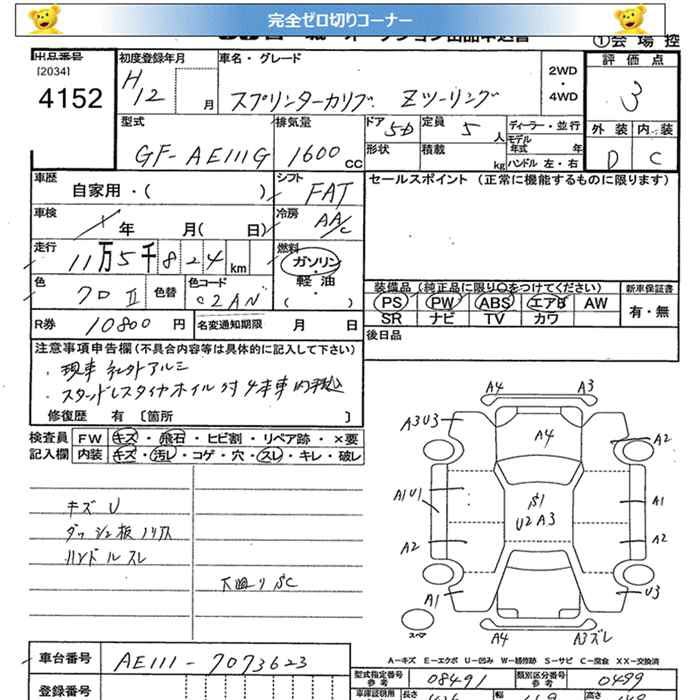 完全ゼロ切りコーナー
① 会 場 控
出品番号
[2034]
4152
初度登録年月
H12 月
車名・グレード
スプリンターカリブ Zツーリング
2WD
・
4WD
評 価 点
3
型式
GF-AE111G
排気量
1600 CC
ドア 5D
定員 5 人
形状
積載 kg
ディーラー・並行
モデル年式 年
ハンドル 左・右
外 装 内 装
D C
車歴
自家用・( )
シフト
FAT
セールスポイント (正常に機能するものに限ります)
車検
年 月( 日)
冷房
AAC
走行
11万5千824 km
燃料
ガソリン
軽 油
・( )
色
クロII
色替
色コード
C2AN
装備品 (純正品に限り○をつけてください)
新車保証書
PS PW ABS エアB AW
SR ナビ TV カワ
有・無
R券 10800 円
名変通知期限 月 日
後日品
注意事項申告欄 (不具合内容等は具体的に記入して下さい)
・現車 社外アルミ
・スタッドレスタイヤホイル付4本車内積込
修復歴 有 〔箇所 〕
検査員 FW キズ・飛石・ヒビ割・リペア跡・×要
記入欄 内装 キズ・汚レ・コゲ・穴・スレ・キレ・破レ
キズ U
ダッシュ板ノリアト
ハンドルスレ
下回りSC
A4 A3
A3U3 A4 A2
A1U1 S1 A1
U2 A3
A2 A2
A1 U3
スペア A4 A3ズレ
A-キズ E-エクボ U-凹み W-補修跡 S-サビ C-腐食 XX-交換済
車台番号 AE111-7073623
型式指定番号 参考 08491
類別区分番号 参考 0499
登録番号
長さ
幅
高さ